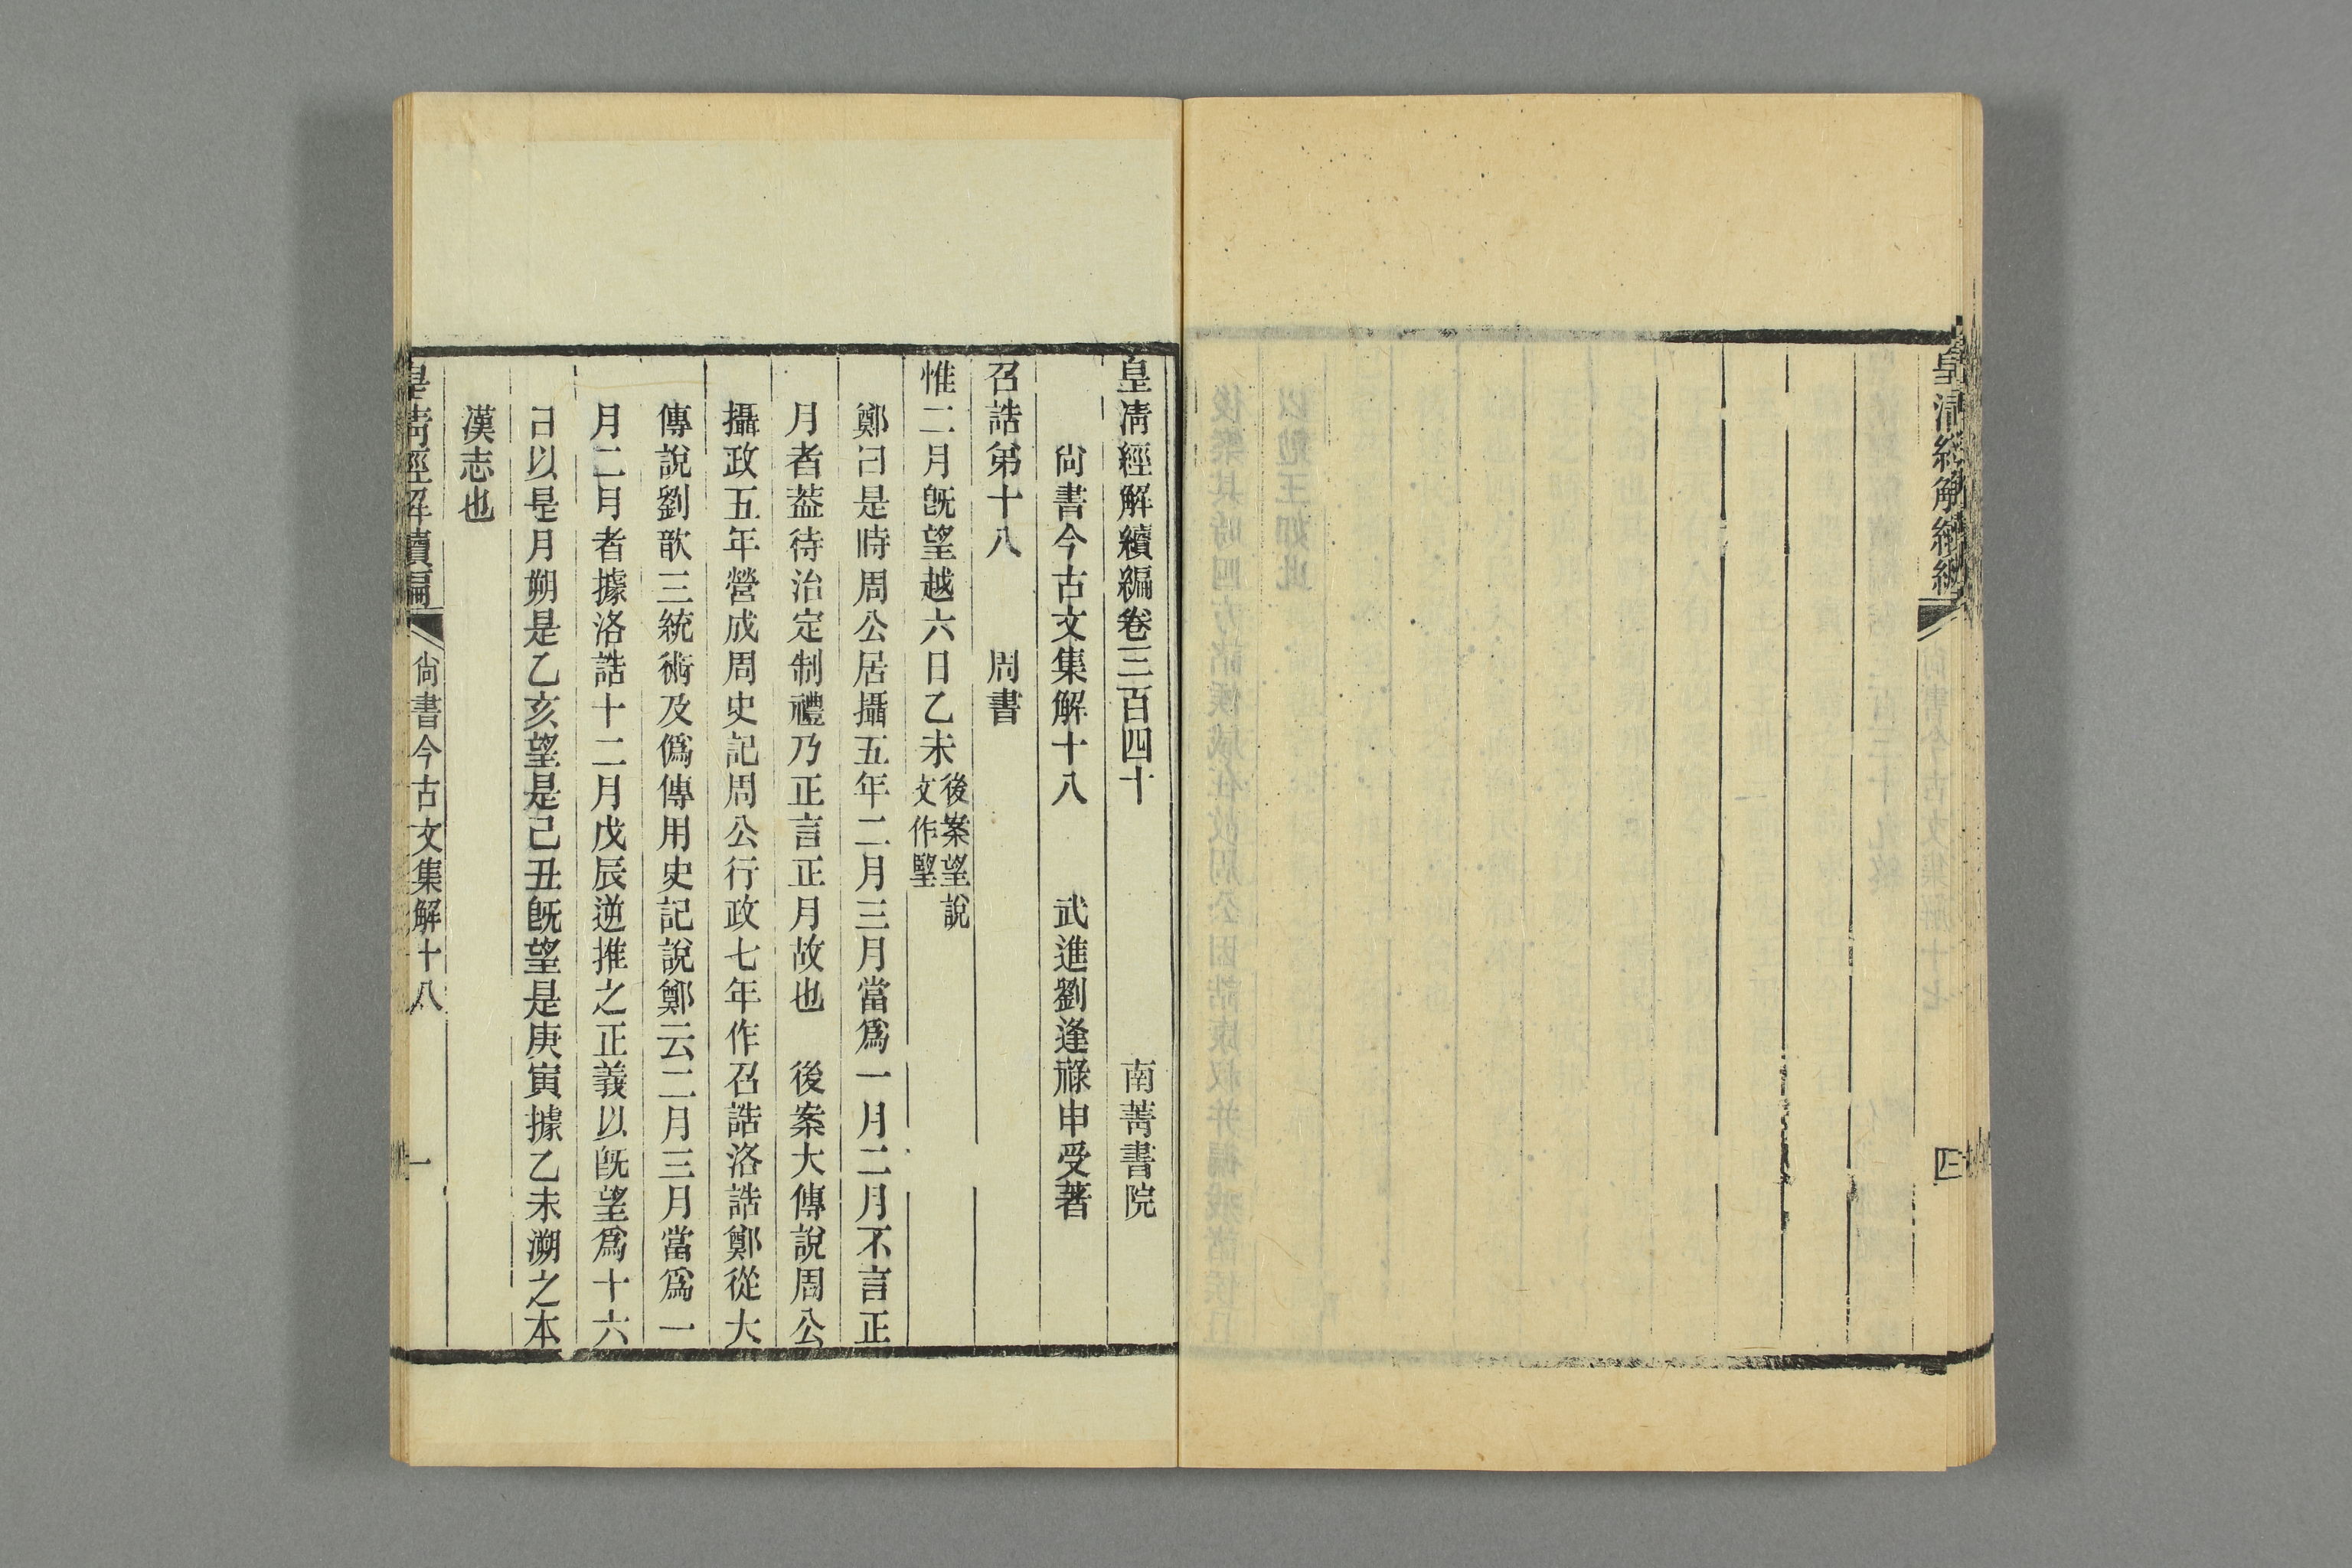 皇清經解續編
四
皇清經解續編卷三百四十 南菁書院
尙書今古文集解十八 武進劉逢祿申受著
召誥第十八 周書
惟二月旣望越六日乙未後案望說文作朢
鄭曰是時周公居攝五年二月三月當爲一月二月不言正
月者葢待治定制禮乃正言正月故也 後案大傳說周公
攝政五年營成周史記周公行政七年作召誥洛誥鄭從大
傳說劉歆三統術及僞傳用史記說鄭云二月三月當爲一
月二月者據洛誥十二月戊辰逆推之正義以旣望爲十六
日以是月朔是乙亥望是己丑旣望是庚寅據乙未溯之本
漢志也
皇淸經解續編 尙書今古文集解十八 一